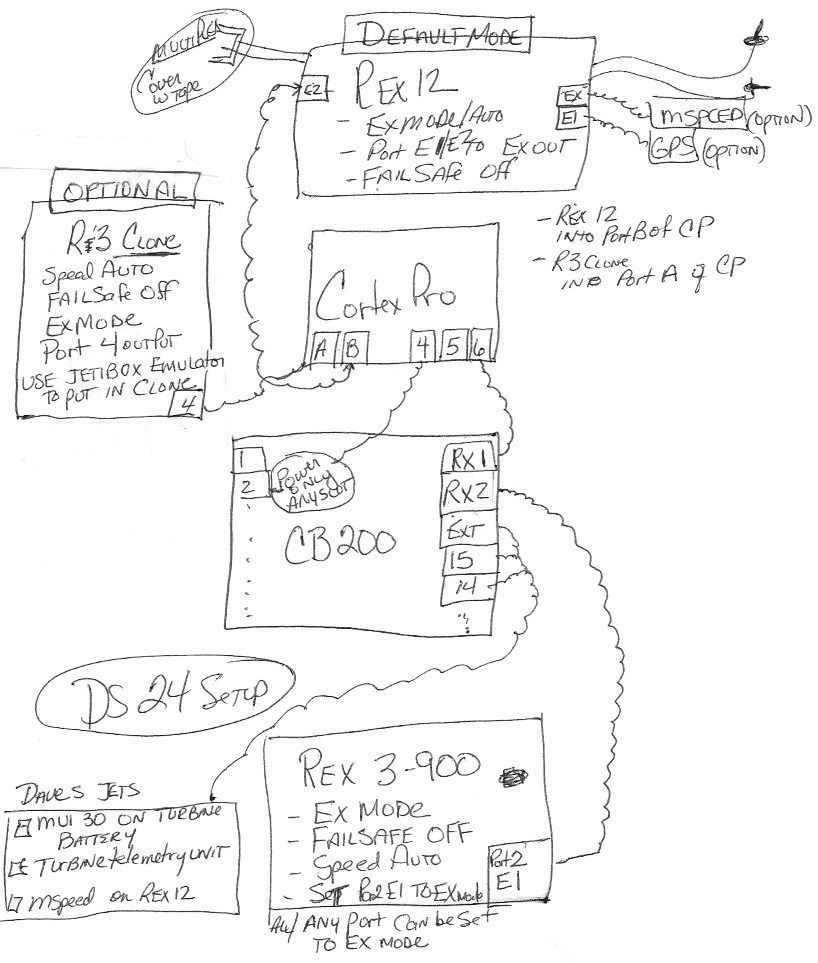 DEFAULT MODE
MULTI REX
COVER
W TAPE
E2
REX 12
- EX MODE/AUTO
- PORT E1/E2 TO EX OUT
- FAILSAFE OFF
EX
E1
MSPEED (OPTION)
GPS (OPTION)
- REX 12
INTO PORT B OF CP
- R3 CLONE
INTO PORT A OF CP
OPTIONAL
R3 CLONE
Speed AUTO
FAILSafe OFF
EXMODE
PORT 4 OUTPUT
USE JETIBOX Emulator
TO PUT IN CLONE
4
Cortex Pro
A B 4 5 6
1
2
POWER
ONLY
ANY SLOT
CB200
RX1
RX2
EXT
15
14
DS 24 SETUP
DAVES JETS
MUI 30 ON TURBINE
BATTERY
TURBINE telemetry UNIT
MSpeed on REX12
REX 3-900
- EX MODE
- FAILSAFE OFF
- Speed AUTO
- SET Port 2 E1 TO EX mode
Port 2
E1
ANY PORT CAN be SET
TO EX MODE